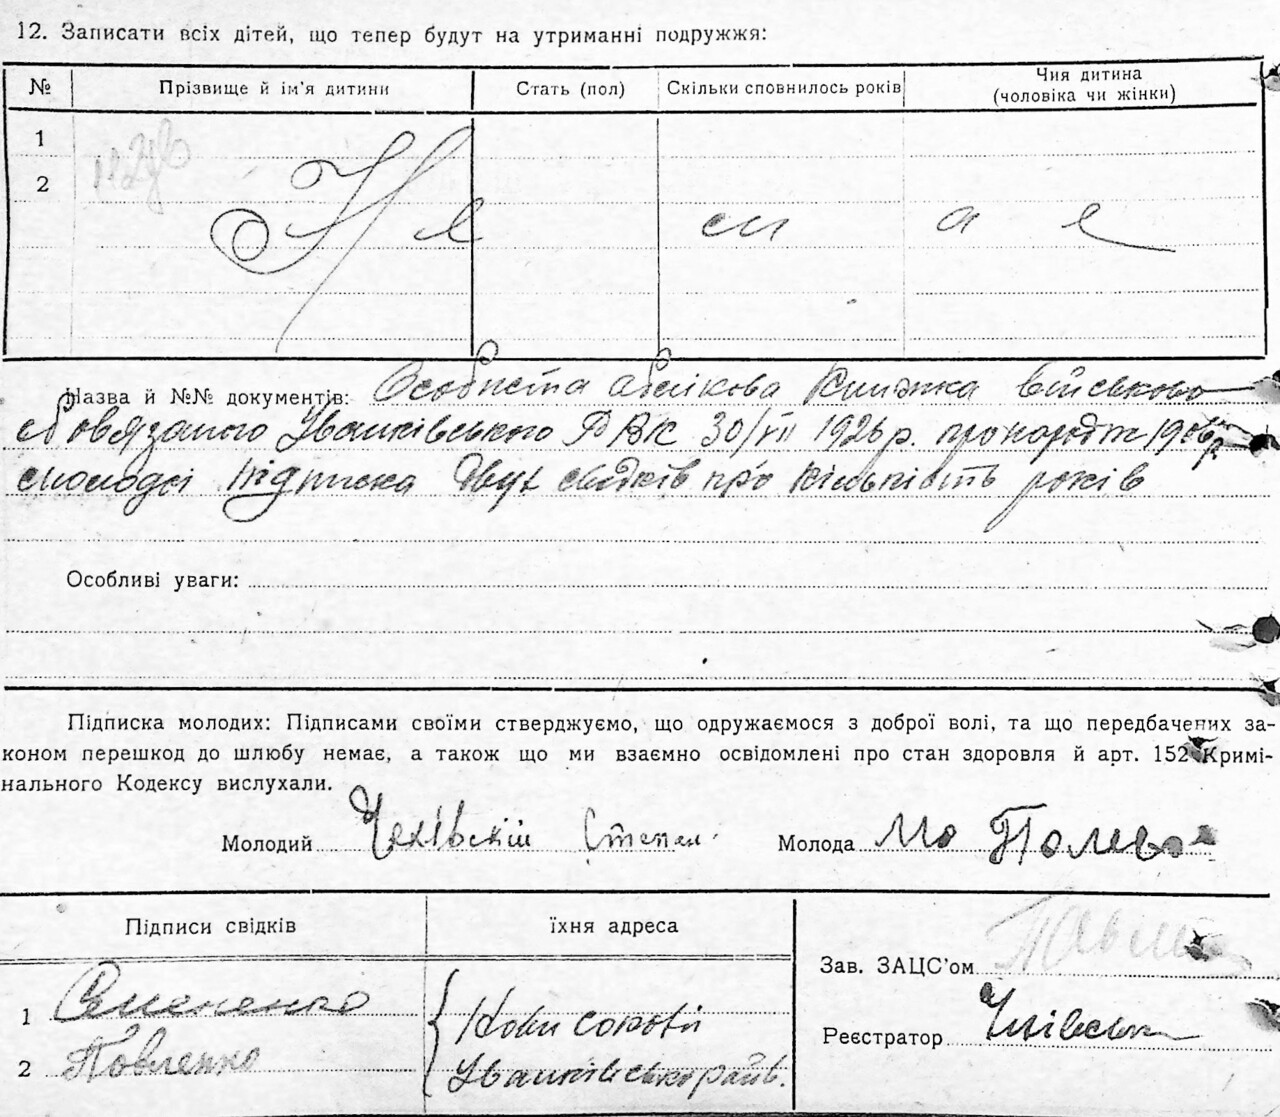 12. Записати всіх дітей, що тепер будут на утриманні подружжя:
№ Прізвище й ім'я дитини Стать (пол) Скільки сповнилось років Чия дитина (чоловіка чи жінки)
1
2
Не має
Назва й №№ документів: Особиста облікова книжка військово
зобов'язаного Іванківського РВК 30/VII 1926 р. про народж 1906 р.
молодої підписка двух свідків про кількість років
Особливі уваги:
Підписка молодих: Підписами своїми стверджуємо, що одружаємося з доброї волі, та що передбачених за-
коном перешкод до шлюбу немає, а також що ми взаємно освідомлені про стан здоровля й арт. 152 Кримі-
нального Кодексу вислухали.
Молодий Чехівскій Степан Молода
Підписи свідків їхня адреса
Зав. ЗАЦС'ом
1 Семененко
Реєстратор
2 Павленко Іванківського рай.